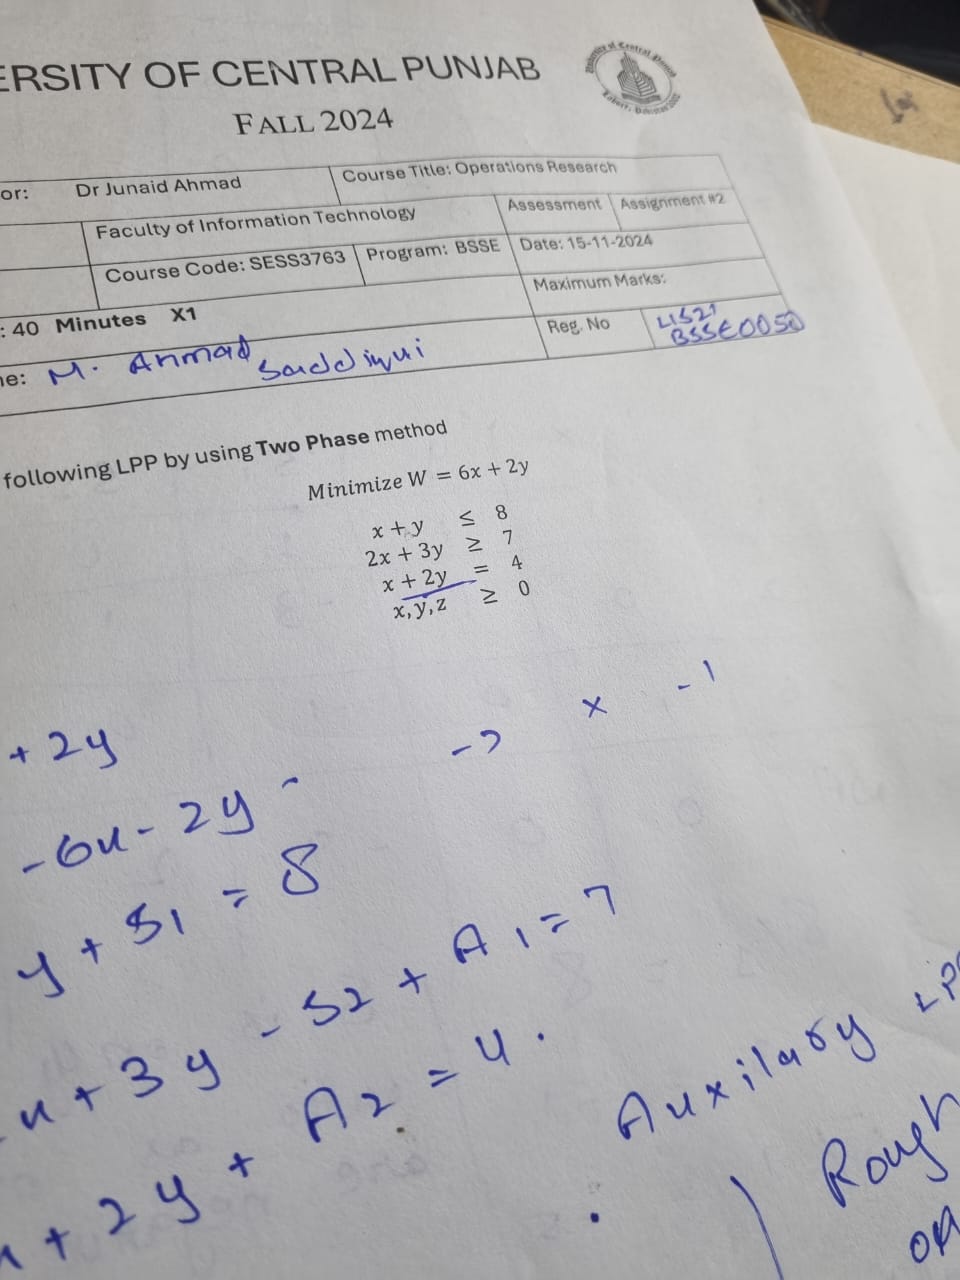 ERSITY OF CENTRAL PUNJAB
FALL 2024
or: Dr Junaid Ahmad Course Title: Operations Research
Faculty of Information Technology Assessment Assignment #2
Course Code: SESS3763 Program: BSSE Date: 15-11-2024
Maximum Marks:
: 40 Minutes X1
ne: M. Ahmad Saddiqui Reg. No L1S21
BSSE0050
following LPP by using Two Phase method
Minimize W = 6x + 2y
x + y ≤ 8
2x + 3y ≥ 7
x + 2y = 4
x, y, z ≥ 0
+ 2y
-6x - 2y -> x -1
y + S1 = 8
x + 3y - S2 + A1 = 7
x + 2y + A2 = 4.
Auxilary LP
Rough